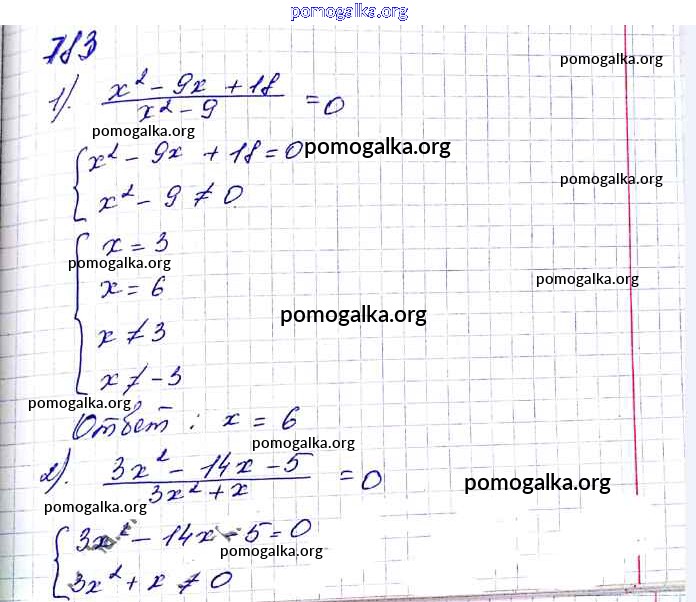 pomogalka.org
783
pomogalka.org
1). x² - 9x + 18 / x² - 9 = 0
pomogalka.org
{ x² - 9x + 18 = 0
pomogalka.org
x² - 9 ≠ 0
pomogalka.org
{ x = 3
pomogalka.org
x = 6
pomogalka.org
pomogalka.org
x ≠ 3
x ≠ -3
pomogalka.org
Ответ : x = 6
pomogalka.org
2). 3x² - 14x - 5 / 3x² + x = 0
pomogalka.org
pomogalka.org
{ 3x² - 14x - 5 = 0
pomogalka.org
3x² + x ≠ 0